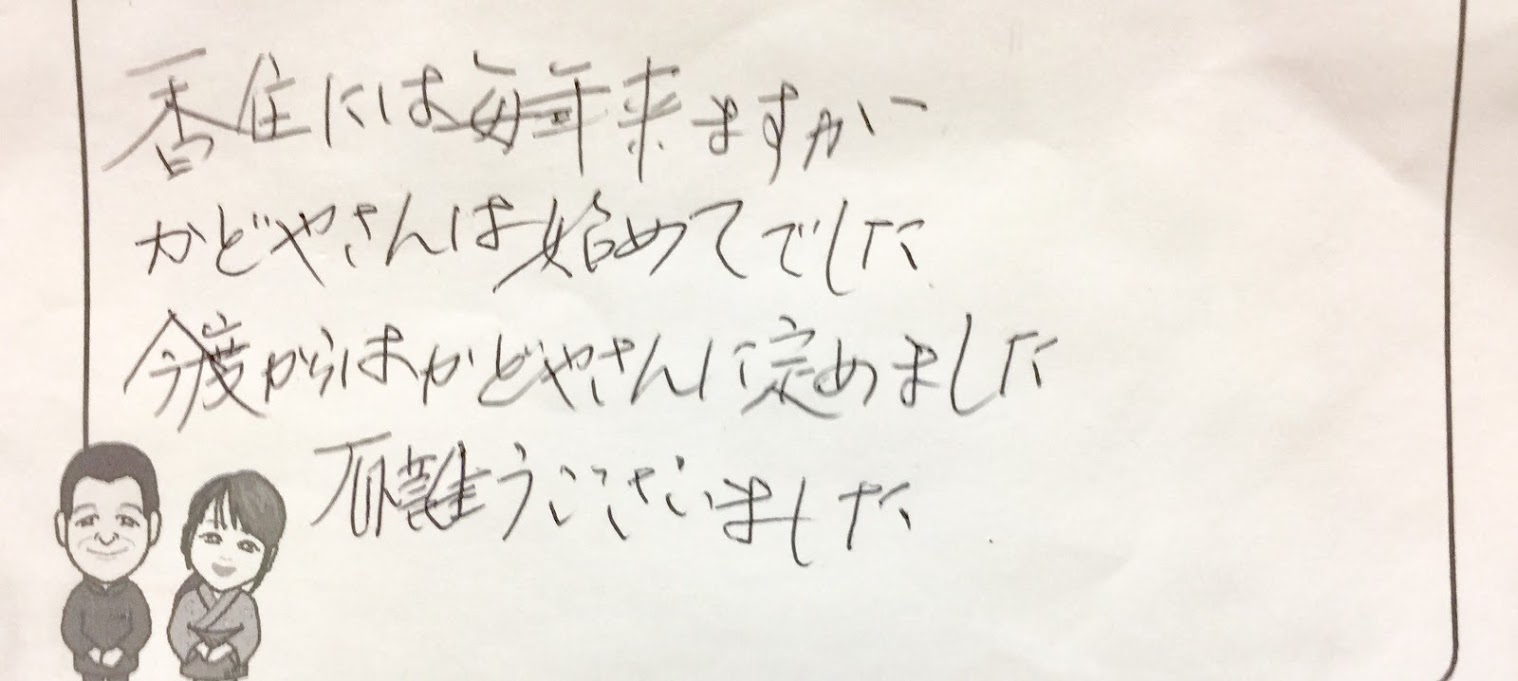 香住には毎年来ますが
かどやさんは始めてでした
今度からはかどやさんに定めました
有難うございました